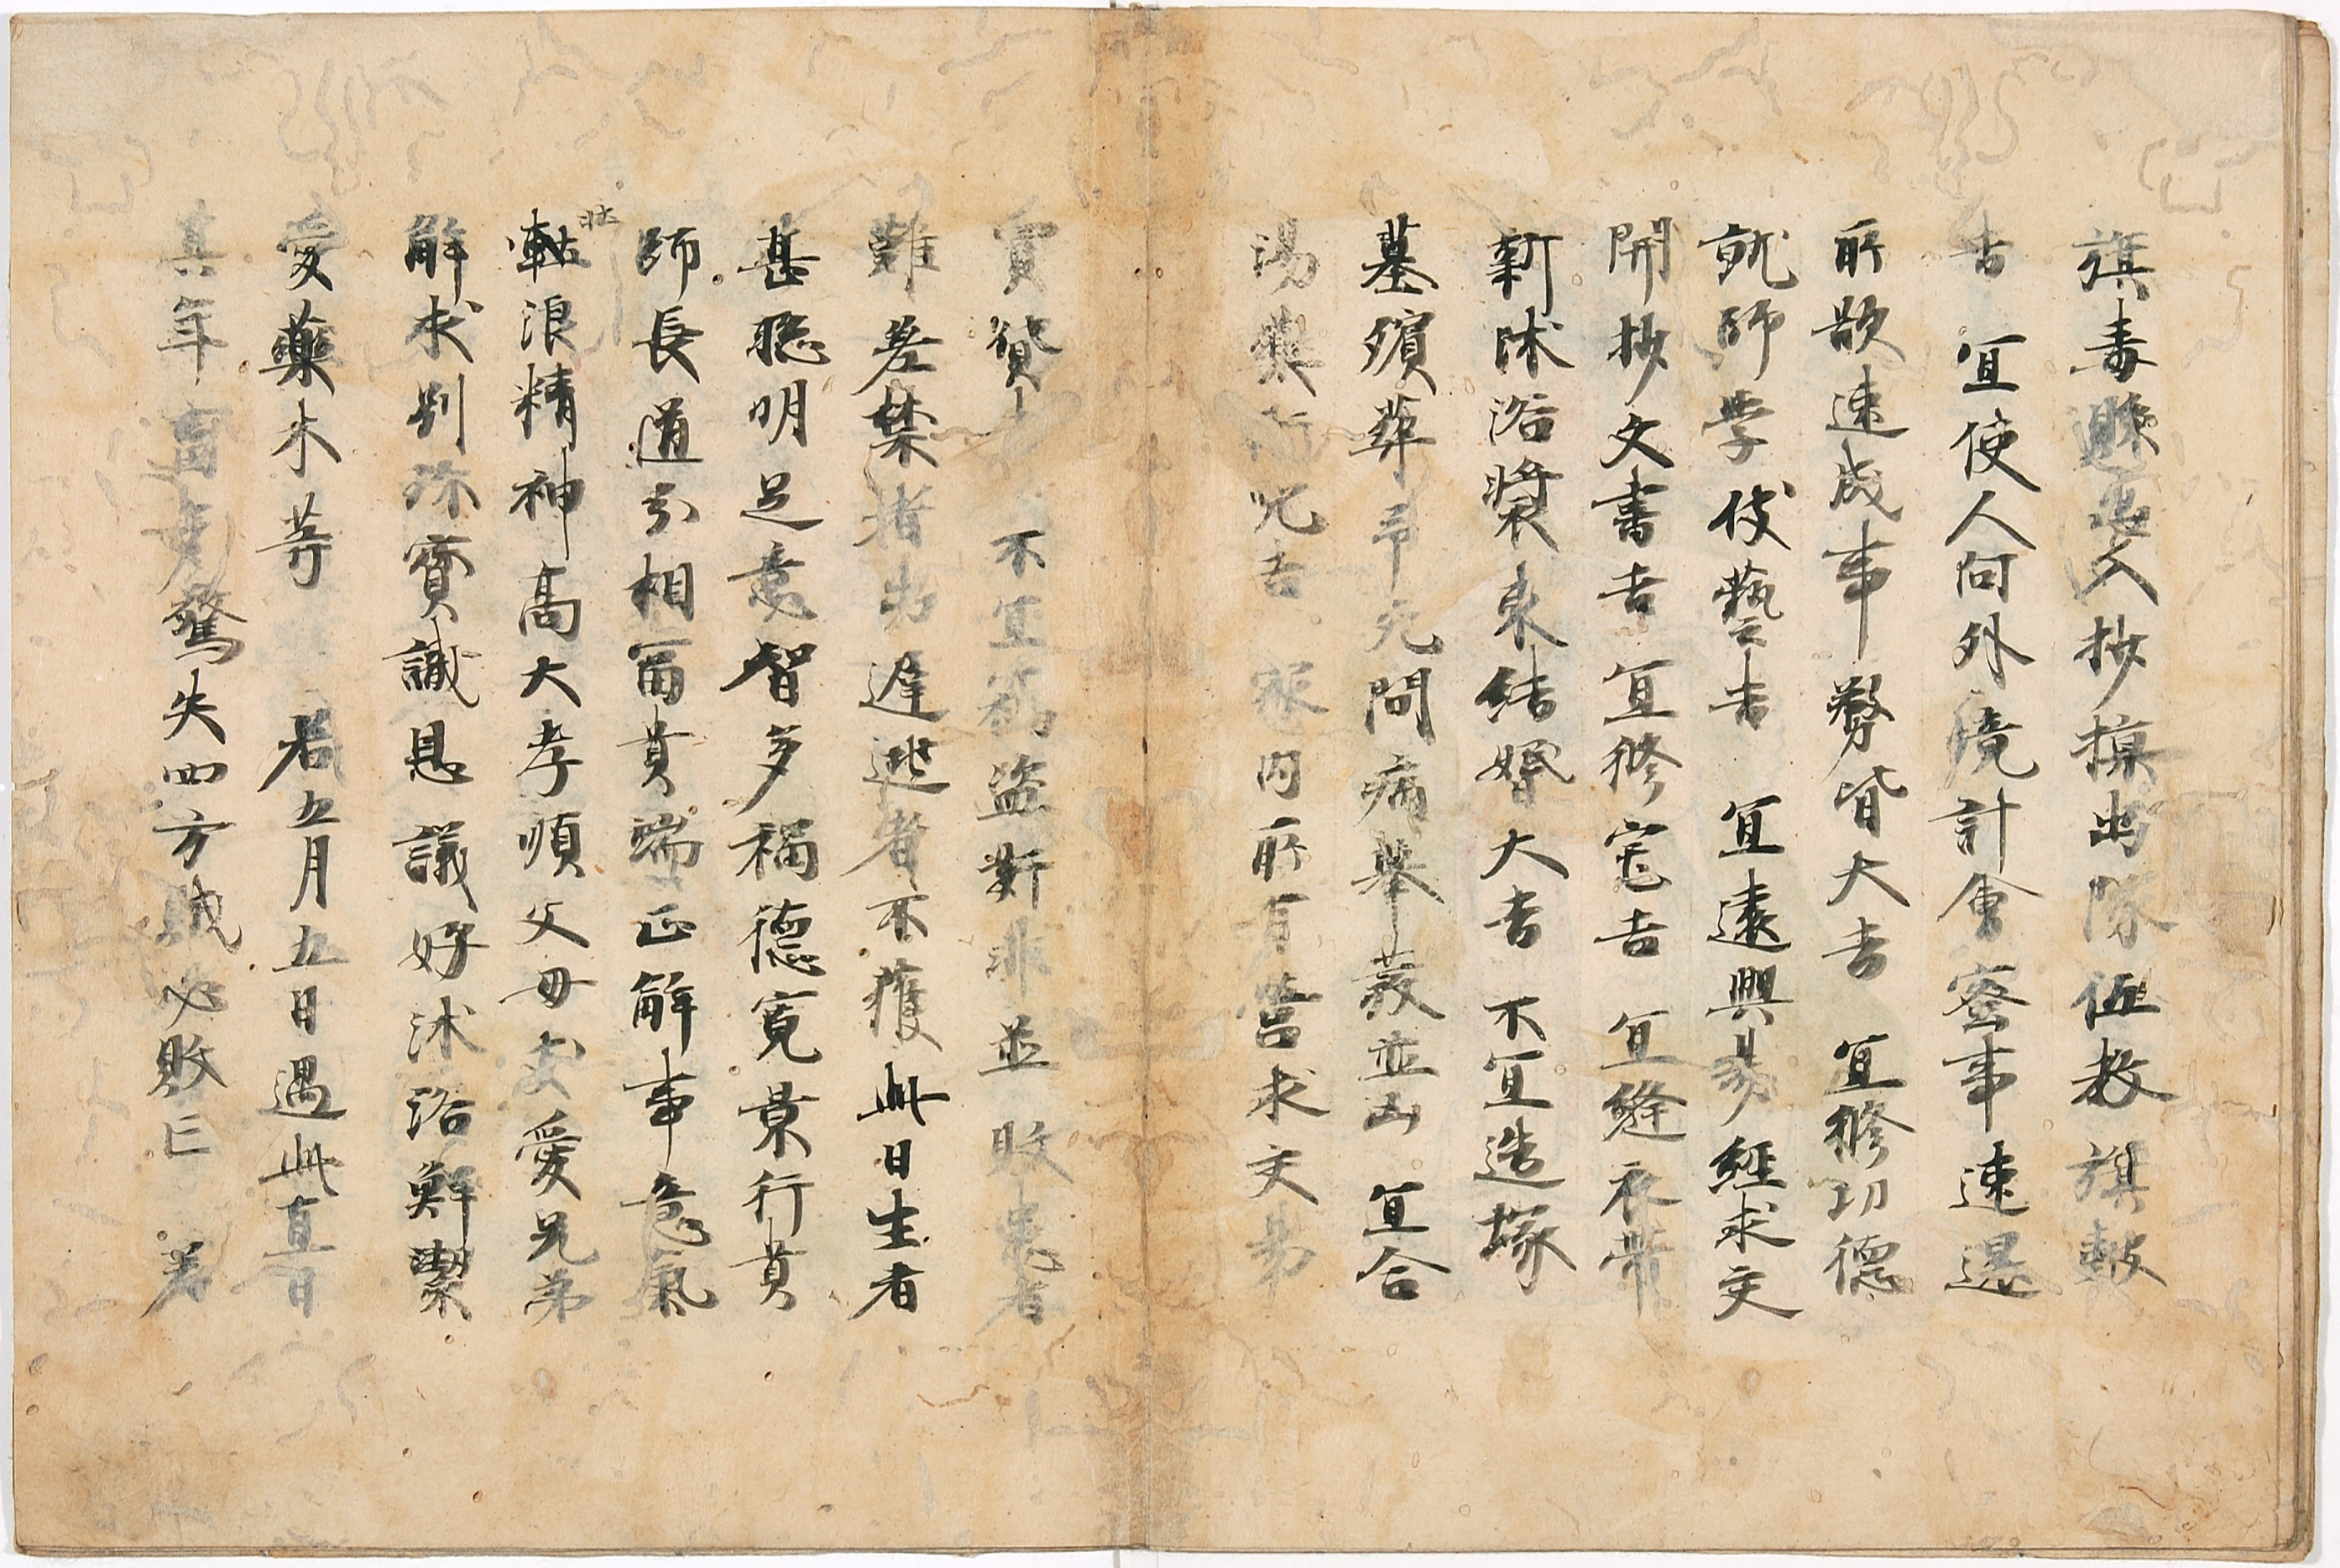 旗毒懸惡人抄掠出隊伍教旗皷
吉　宜使人向外境計會密事速還
所欲速成事弊皆大吉　宜修功德
就師學伎藝吉　宜遠興易經求交
開抄文書吉　宜修宅吉　宜縫衣帶
新沐浴裝束結婚大吉　不宜造塚
墓殯葬弔死問病舉哀並凶　宜合
湯藥符呪吉　家內所有營求交易
買賃　不宜竊盜斯非並敗患者
難差禁指出遲逃者不獲此日生者
甚聰明足意智多福德寬景行貴
師長道引相冨貴端正解事意氣
軩浪精神高大孝順父母
愛兄弟
解求別珎寶識恩議好沐浴鮮潔
愛藥木等　若五月五日遇此直日
其年畜夷驚失四方賊必敗亡　若